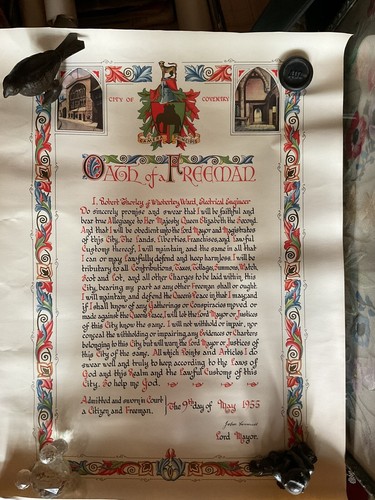 CITY OF COVENTRY
OATH of a FREEMAN.
I, Robert Thorley of Whoberley Ward, Electrical Engineer
Do sincerely promise and swear that I will be faithful and
bear true Allegiance to Her Majesty Queen Elizabeth the Second.
And that I will be obedient unto the Lord Mayor and Magistrates
of this City. The Lands, Liberties, Franchises, and lawful
Customs thereof, I will maintain, and the same in all that
I can or may lawfully defend and keep harmless. I will be
tributary to all Contributions, Taxes, Tollages, Summons, Watch,
Scot and Lot, and all other Charges to be laid within this
City, bearing my part as any other Freeman shall or ought
I will maintain and defend the Queen's Peace in that I may, and
if I shall know of any Gatherings or Conspiracies moved or
made against the Queen's Peace, I will let the Lord Mayor or Justices
of this City know the same. I will not withhold or impair, nor
conceal the withholding or impairing any Evidences or Charters
belonging to this City but will warn the Lord Mayor or Justices of
this City of the same. All which Points and Articles I do
swear well and truly to keep according to the Laws of
God and this Realm and the Lawful Customs of this
City. So help me God.
Admitted and sworn in Court
a Citizen and Freeman.
The 9th day of May 1955
Lord Mayor.